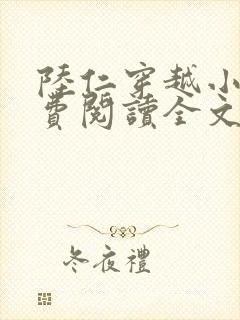 陸仁穿越小
費閱讀全文
冬夜禮